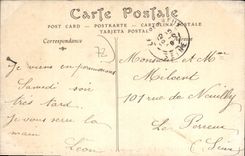 Carte Postale
POST CARD - POSTKARTE - CARTOLINA POSTALE
TARJETA POSTAL
Correspondance
72
Je viens en permission
Samedi soir
très tard.
Je vous serre la
main
Léon
Monsieur et Mme
Milaent
101 rue de Neuilly
Le Perreux
(Seine)